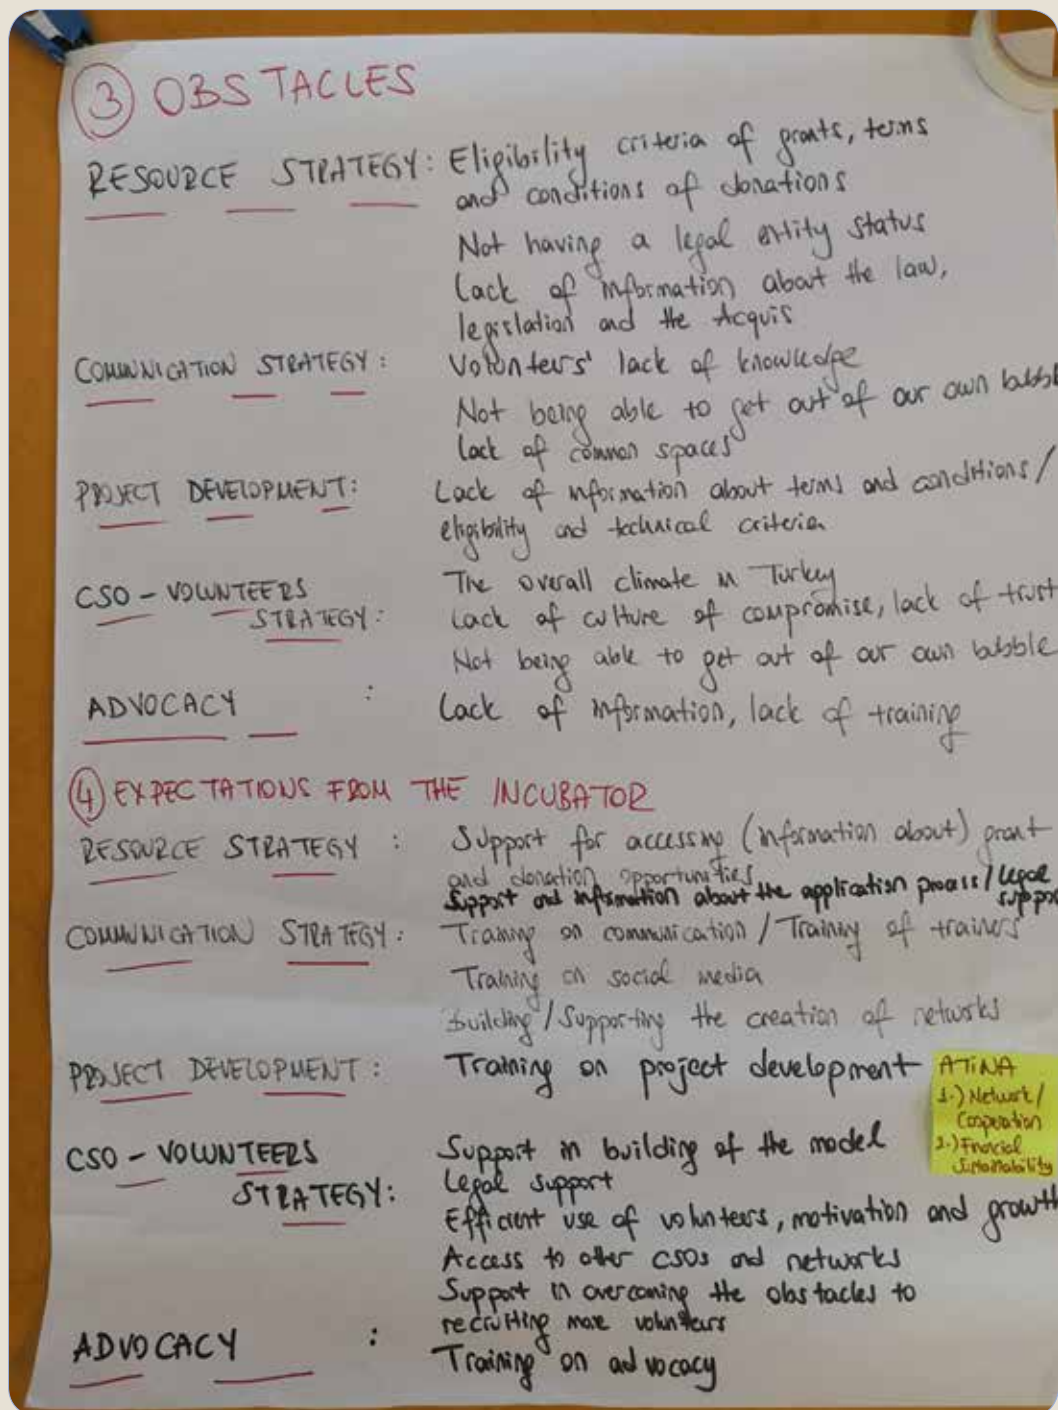 3 OBSTACLES
RESOURCE STRATEGY: Eligibility criteria of grants, terms
and conditions of donations
Not having a legal entity status
Lack of information about the law,
legislation and the Acquis
COMMUNICATION STRATEGY: Volunteers' lack of knowledge
Not being able to get out of our own bubble
Lack of common spaces
PROJECT DEVELOPMENT: Lack of information about terms and conditions/
eligibility and technical criteria
CSO - VOLUNTEERS The overall climate in Turkey
STRATEGY: Lack of culture of compromise, lack of trust
Not being able to get out of our own bubble
ADVOCACY : Lack of information, lack of training
4 EXPECTATIONS FROM THE INCUBATOR
RESOURCE STRATEGY : Support for accessing (information about) grant
and donation opportunities
Support and information about the application process/legal
support
COMMUNICATION STRATEGY: Training on communication / Training of trainers
Training on social media
Building / Supporting the creation of networks
PROJECT DEVELOPMENT: Training on project development
ATiNA
1-) Network/
Cooperation
2-) Financial
Sustainability
CSO - VOLUNTEERS Support in building of the model
STRATEGY: Legal support
Efficient use of volunteers, motivation and growth
Access to other CSOs and networks
Support in overcoming the obstacles to
recruiting more volunteers
ADVOCACY : Training on advocacy